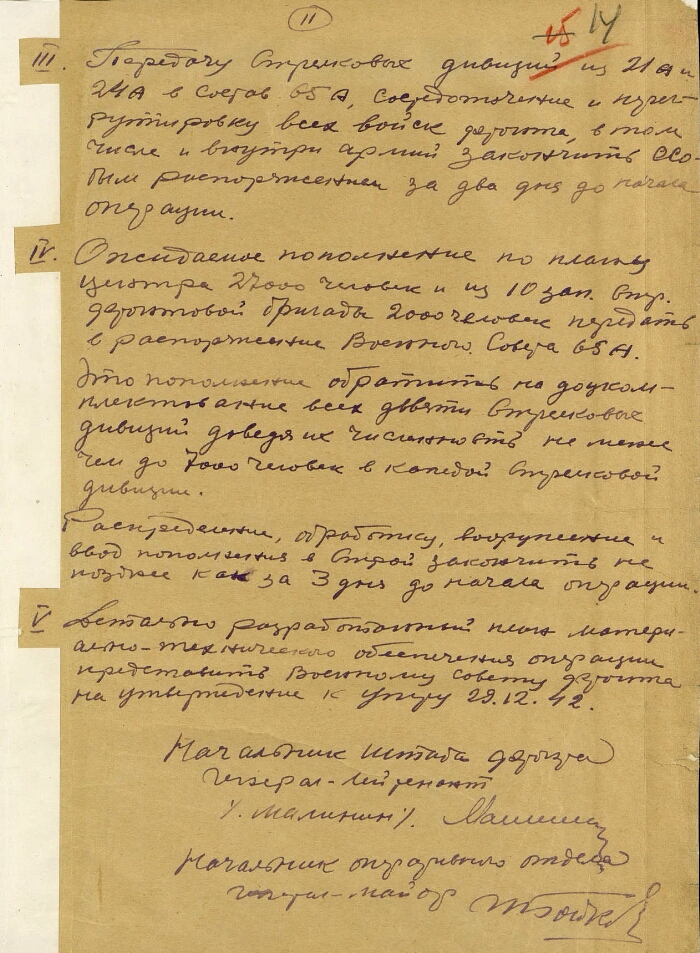 11
15 14
III. Передачу стрелковых дивизий из 21А и
24А в состав 65А, сосредоточение и перег-
руппировку всех войск фронта, в том
числе и внутри армий закончить осо-
бым распоряжением за два дня до начала
операции.
IV. Ожидаемое пополнение по плану
центра 27000 человек и из 10 зап. стр.
фронтовой бригады 2000 человек передать
в распоряжение Военного Совета 65А.
Это пополнение обратить на доуком-
плектование всех девяти стрелковых
дивизий доведя их численность не менее
чем до 7000 человек в каждой стрелковой
дивизии.
Распределение, обработку, вооружение и
ввод пополнения в строй закончить не
позднее как за 3 дня до начала операции.
V Детально разработанный план матери-
ально-технического обеспечения операции
представить Военному совету фронта
на утверждение к утру 29.12.42.
Начальник штаба фронта
генерал-лейтенант
/. Малинин/. Малинин
Начальник оперативного отдела
генерал-майор